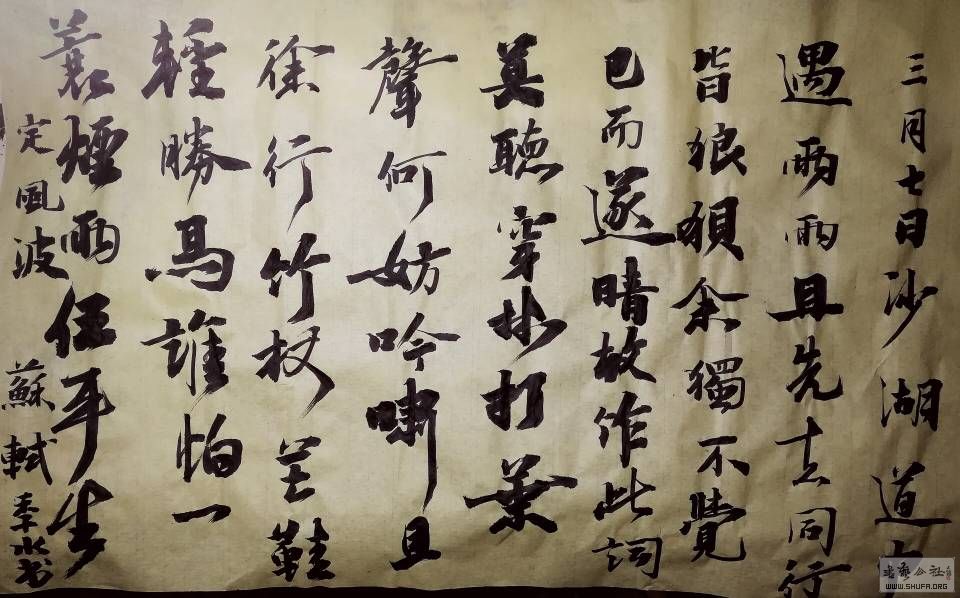 三月七日沙湖道中
遇雨雨且先去同行
皆狼狽余獨不覺
已而遂暗故作此詞
莫聽穿林打葉
聲何妨吟嘯且
徐行竹杖芒鞋
輕勝馬誰怕一
蓑煙雨任平生
定風波 蘇軾
WWW.SHUFA.ORG